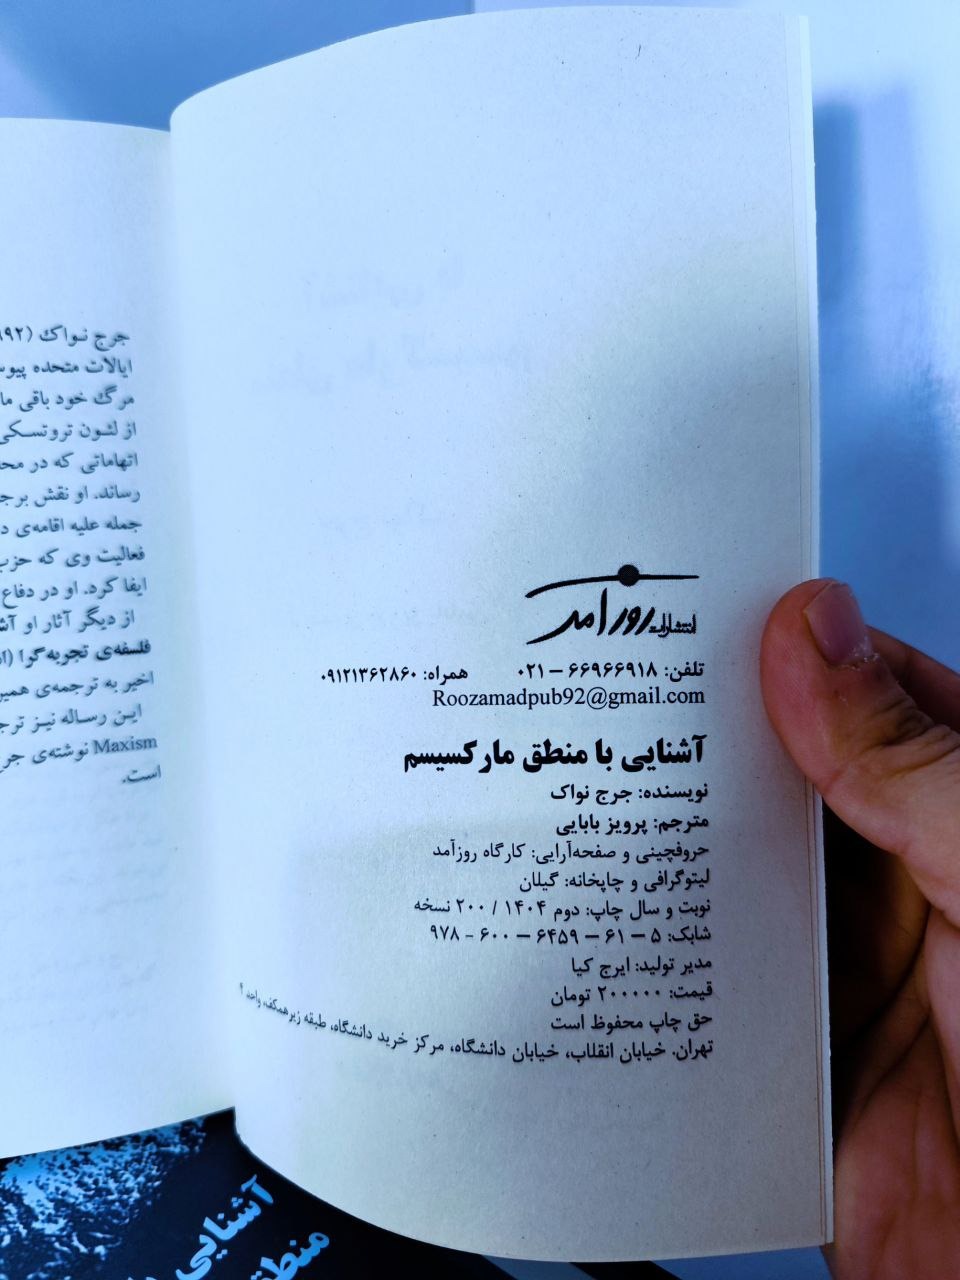 انتشارات روزآمد
تلفن: ۶۶۹۶۶۹۱۸ – ۰۲۱ همراه: ۰۹۱۲۱۳۶۲۸۶۰
Roozamadpub92@gmail.com
آشنایی با منطق مارکسیسم
نویسنده: جرج نواک
مترجم: پرویز بابایی
حروفچینی و صفحه‌آرایی: کارگاه روزآمد
لیتوگرافی و چاپخانه: گیلان
نوبت و سال چاپ: دوم ۱۴۰۴ / ۲۰۰ نسخه
شابک: ۵ – ۶۱ – ۶۴۵۹ – ۶۰۰ - ۹۷۸
مدیر تولید: ایرج کیا
قیمت: ۲۰۰۰۰۰ تومان
حق چاپ محفوظ است
تهران. خیابان انقلاب، خیابان دانشگاه، مرکز خرید دانشگاه، طبقه زیرهمکف، واحد ۴
جرج نواک (
ایالات متحده
مرگ خود باقی
از لئون تروتسکی
اتهاماتی که در
رساند. او نقش
جمله علیه اقامه‌ی
فعالیت وی که حزب
ایفا کرد. او در دفاع
از دیگر آثار او
فلسفه‌ی تجربه‌گرا
اخیر به ترجمه‌ی
این رساله نیز
Maxism نوشته‌ی
است.
آشنایی